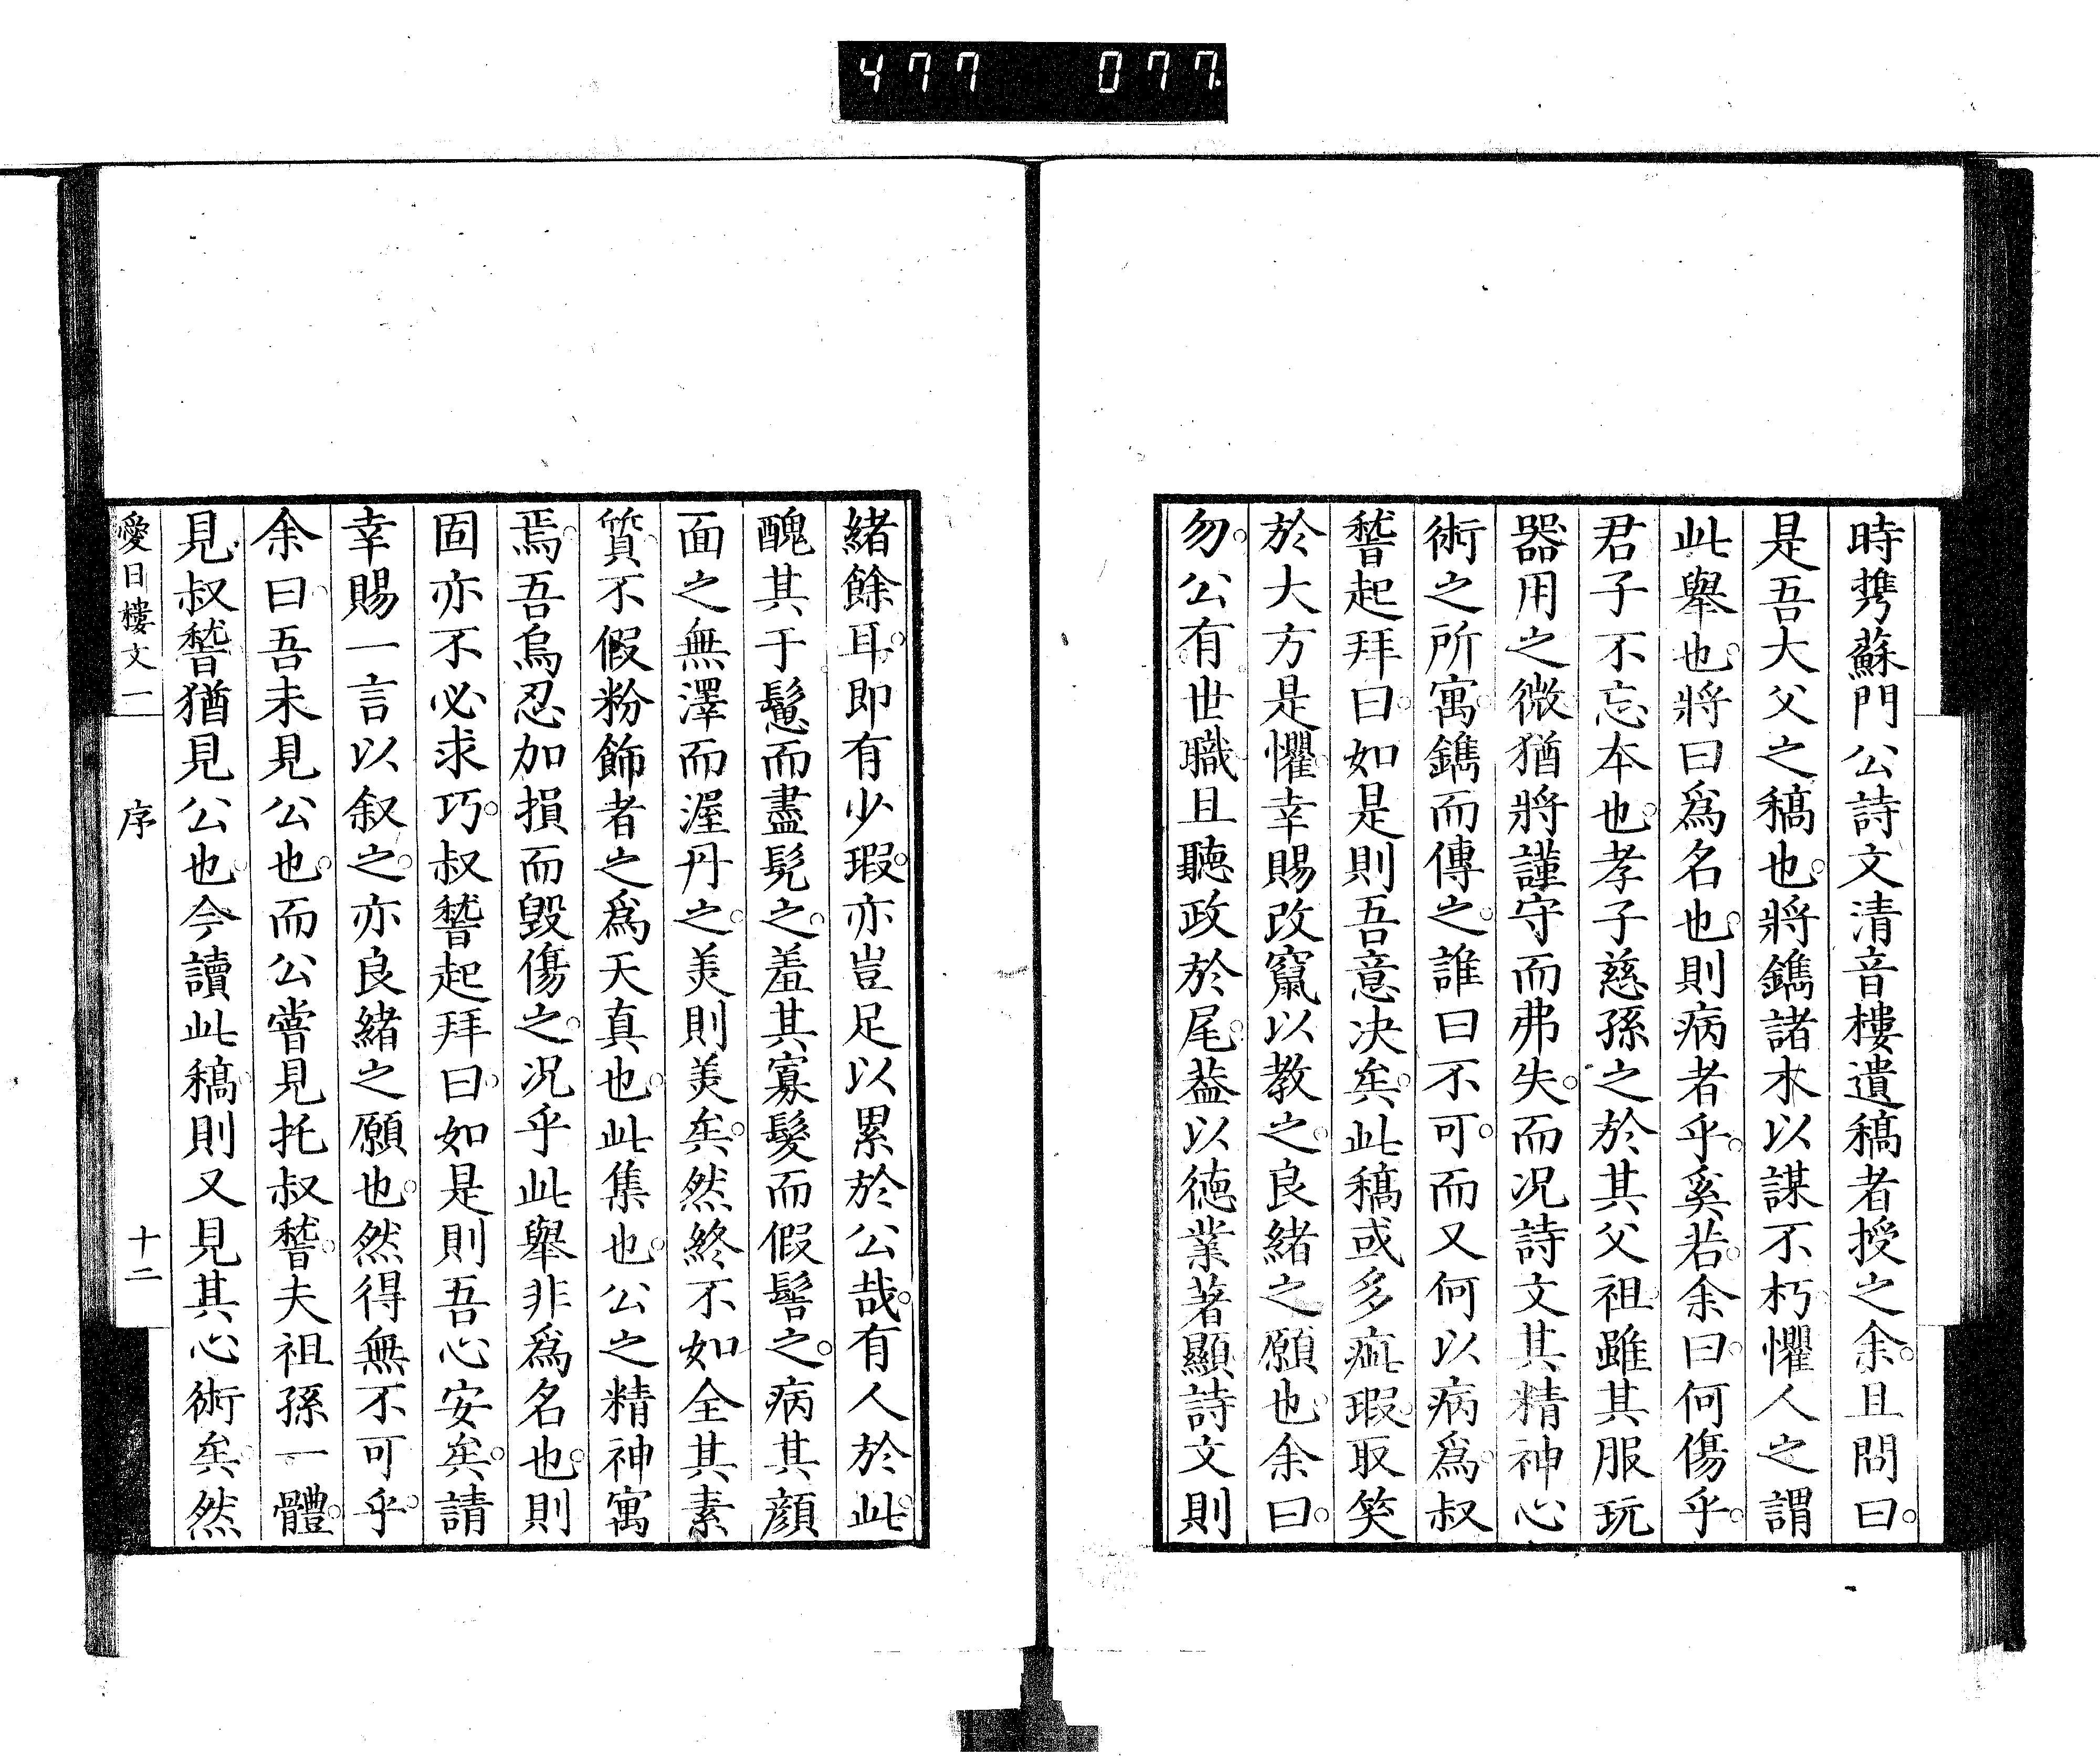 477 077
時携蘇門公詩文清音樓遺稿者授之余。且問曰。
是吾大父之稿也。將鐫諸木以謀不朽。懼人之謂
此舉也。將曰爲名也。則病者乎。奚若。余曰。何傷乎。
君子不忘本也。孝子慈孫之於其父祖。雖其服玩
器用之微。猶將謹守而弗失。而況詩文其精神心
術之所寓。鐫而傳之。誰曰不可。而又何以病爲。叔
嵆起拜曰。如是則吾意决矣。此稿或多疵瑕。取笑
於大方是懼。幸賜改竄以教之。良緒之願也。余曰。
勿。公有世職。且聽政於尾。蓋以德業著顯。詩文則
緒餘耳。即有少瑕。亦豈足以累於公哉。有人於此。
醜其于鬛而盡髡之。羞其寡髮而假髻之。病其顔
面之無澤而渥丹之。美則美矣。然終不如全其素
質。不假粉飾者之爲天真也。此集也。公之精神寓
焉。吾烏忍加損而毀傷之。况乎此舉非爲名也。則
固亦不必求巧。叔嵆起拜曰。如是則吾心安矣。請
幸賜一言以叙之。亦良緒之願也。然得無不可乎。
余曰。吾未見公也。而公嘗見托叔嵆。夫祖孫一體。
見叔嵆猶見公也。今讀此稿。則又見其心術矣。然
愛日樓文一 序 十二